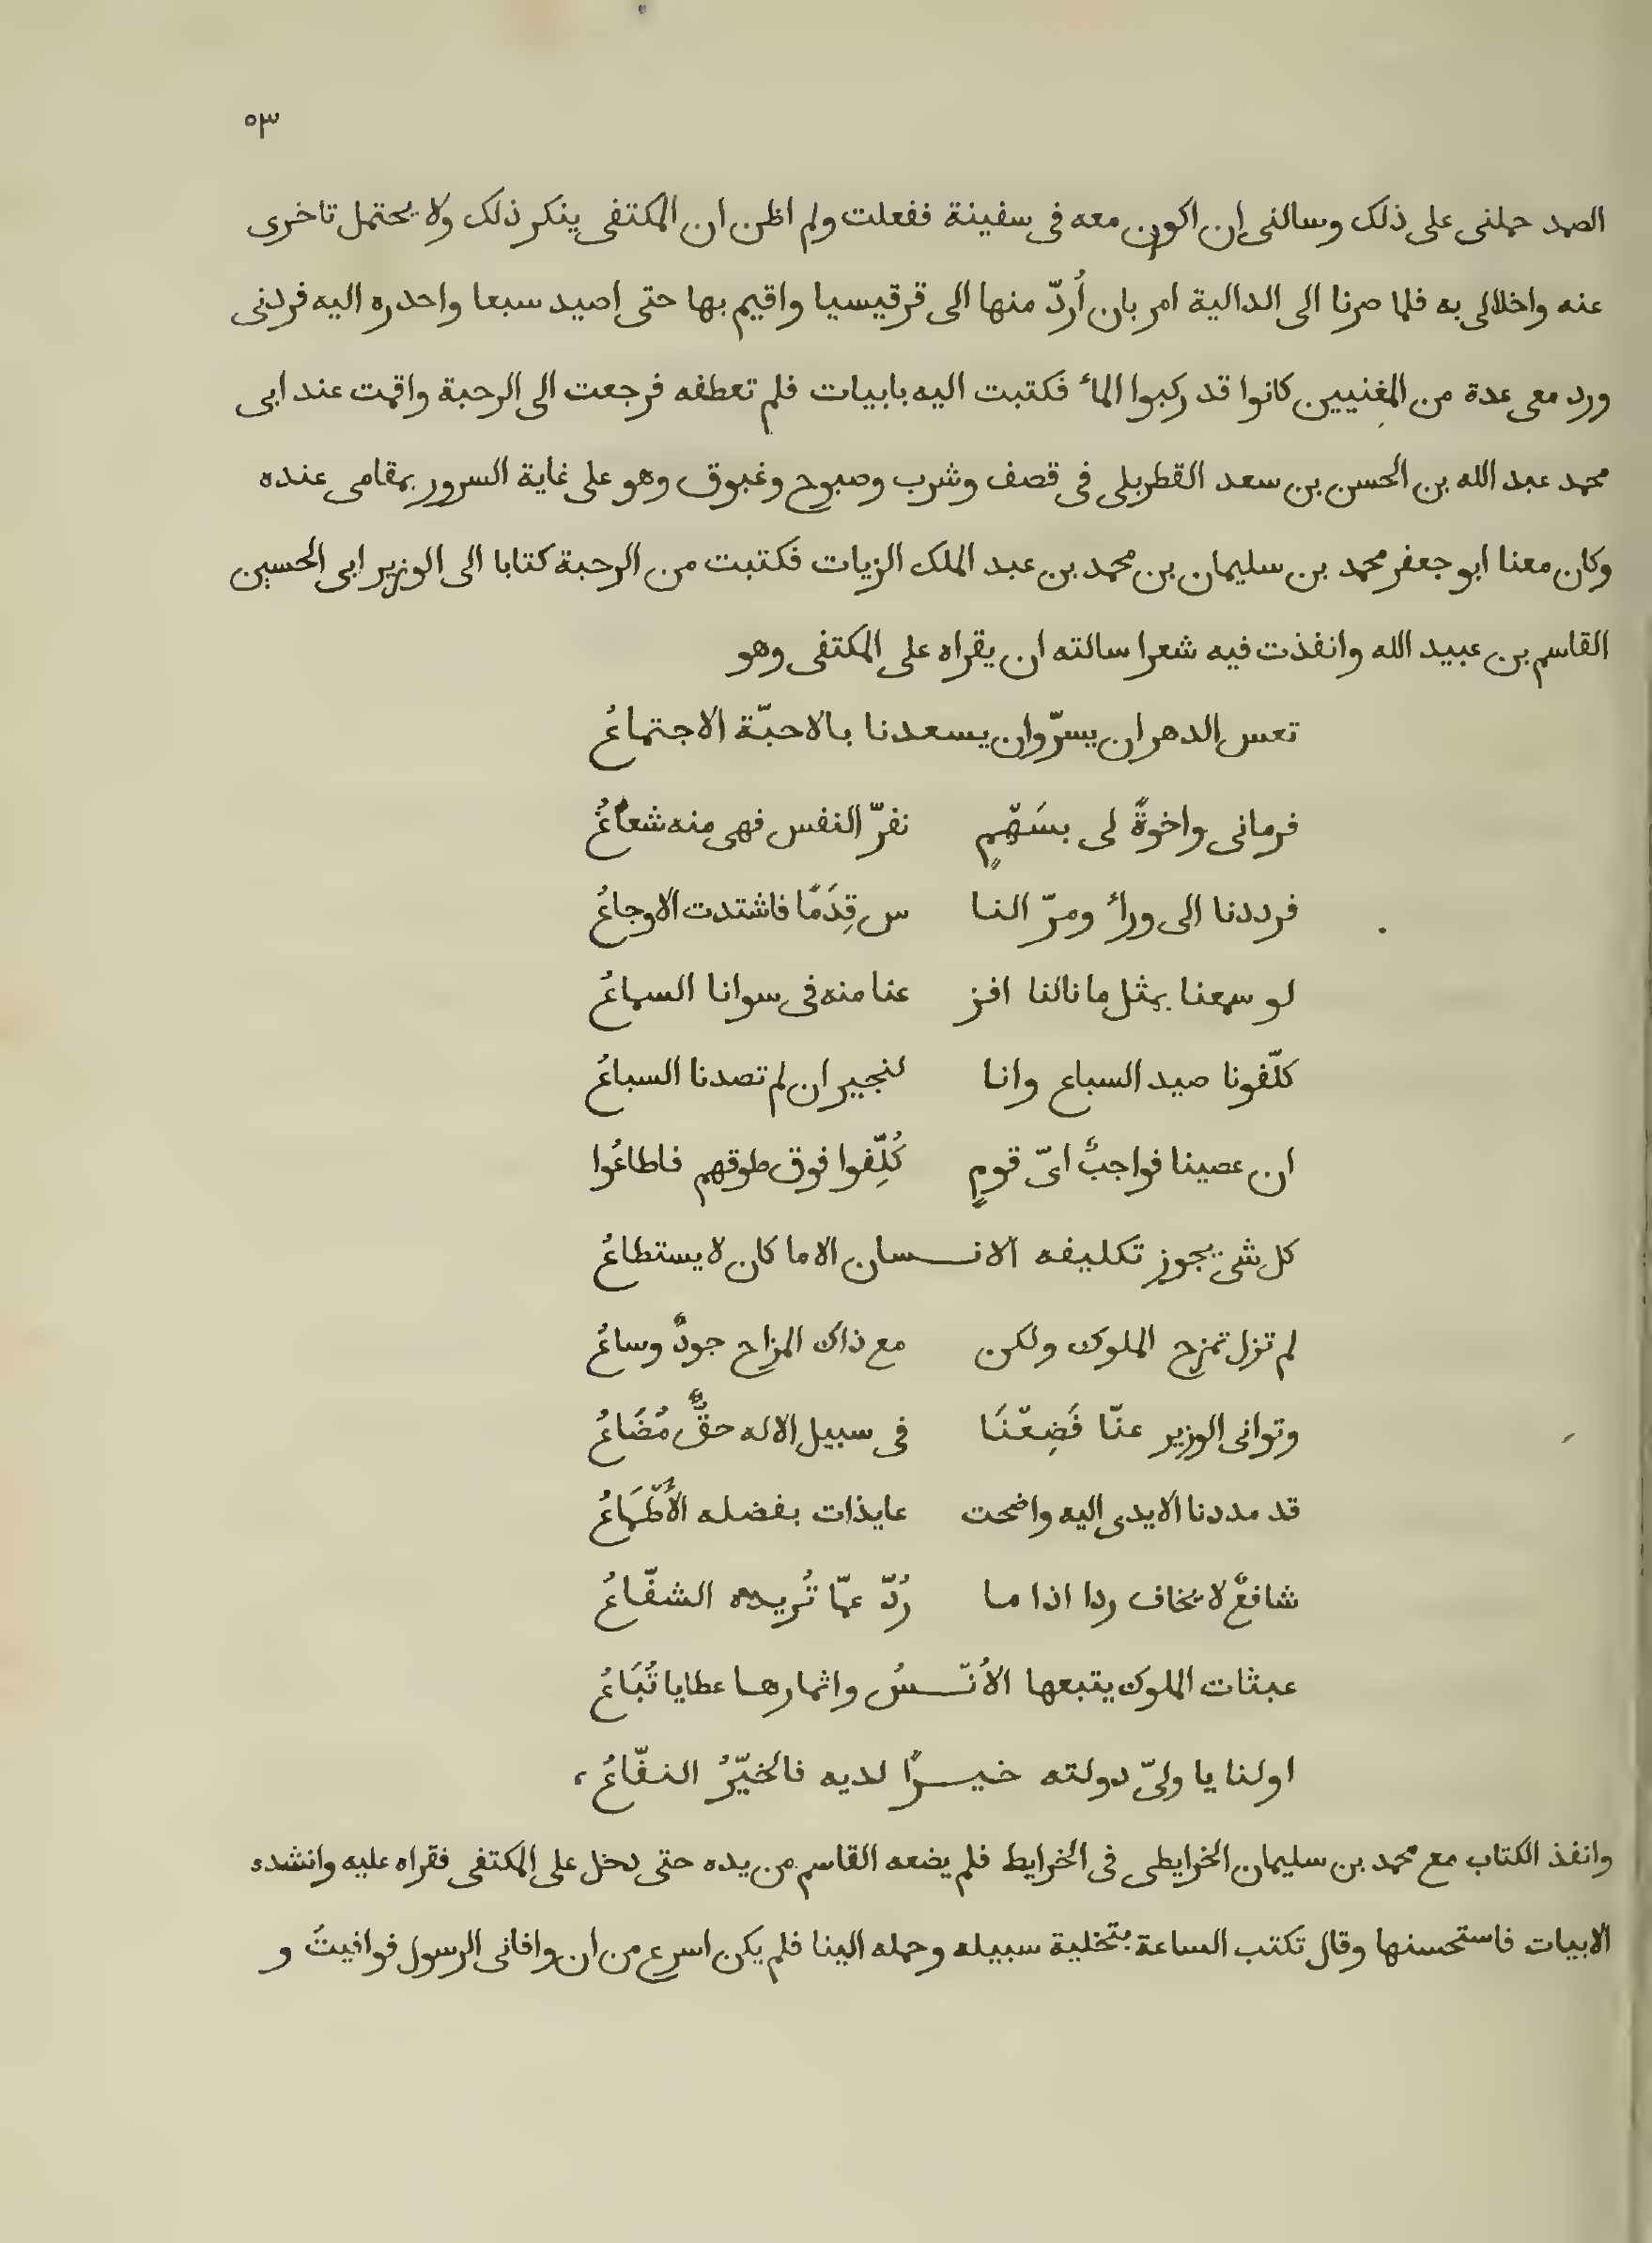 ٥٣
الصد حملنى على ذلك وسالنى ان اكون معه فى سفينة ففعلت ولم اظن ان المكتفى ينكر ذلك ولا يحتمل تاخرى
عنه واخلالى به فلما صرنا الى الدالية امر بان أُردّ منها الى قرقيسيا واقيم بها حتى اصيد سبعا واحدره اليه فردنى
ورد معى عدة من المغنيين كانوا قد ركبوا الماء فكتبت اليه بابيات فلم تعطفه فرجعت الى الرحبة واقمت عند ابى
محمد عبد الله بن الحسن بن سعد القطربلى فى قصف وشرب وصبوح وغبوق وهو على غاية السرور بمقامى عنده
وكان معنا ابو جعفر محمد بن سليمان بن محمد بن عبد الملك الزيات فكتبت من الرحبة كتابا الى الوزير ابى الحسين
القاسم بن عبيد الله وانفذت فيه شعرا سالته ان يقراه على المكتفى وهو
تعس الدهر ان يسرّ وان يسعدنا بالاحبّة الاجتماعُ
فرمانى واخوةً لى بسَهّمٍ نفرّ النفس فهى منه شعاعُ
فرددنا الى وراء ومرّ النا س قِدَمًا فاشتدت الاوجاعُ
لو سمعنا بمثل ما نالنا افز عنا منه فى سوانا السماعُ
كلّفونا صيد السباع وانا لنجير ان لم تصدنا السباعُ
ان عصينا فواجبٌ اىّ قومٍ كُلِّفوا فوق طوقهم فاطاعُوا
كل شى يجوز تكليفه الانسان الا ما كان لا يستطاعُ
لم تزل تمزح الملوك ولكن مع ذاك المزاح جودٌ وساعُ
وتوانى الوزير عنّا فَضِعّنَا فى سبيل الاله حقٌّ مُضَاعُ
قد مددنا الايدى اليه واضحت عايذات بفضله الأَطّمَاعُ
شافعٌ لا يخاف ردا اذا ما رُدّ عمّا تُريده الشفّاعُ
عبثات الملوك يتبعها الأنّسُ واثمارها عطايا تُبَاعُ
اولنا يا ولىّ دولته خيرًا لديه فالخيّرُ النفّاعُ،
وانفذ الكتاب مع محمد بن سليمان الخرايطى فى الخرايط فلم يضعه القاسم من يده حتى دخل على المكتفى فقراه عليه وانشده
الابيات فاستحسنها وقال تكتب الساعة بتخلية سبيله وحمله الينا فلم يكن اسرع من ان وافانى الرسول فوافيتُ و